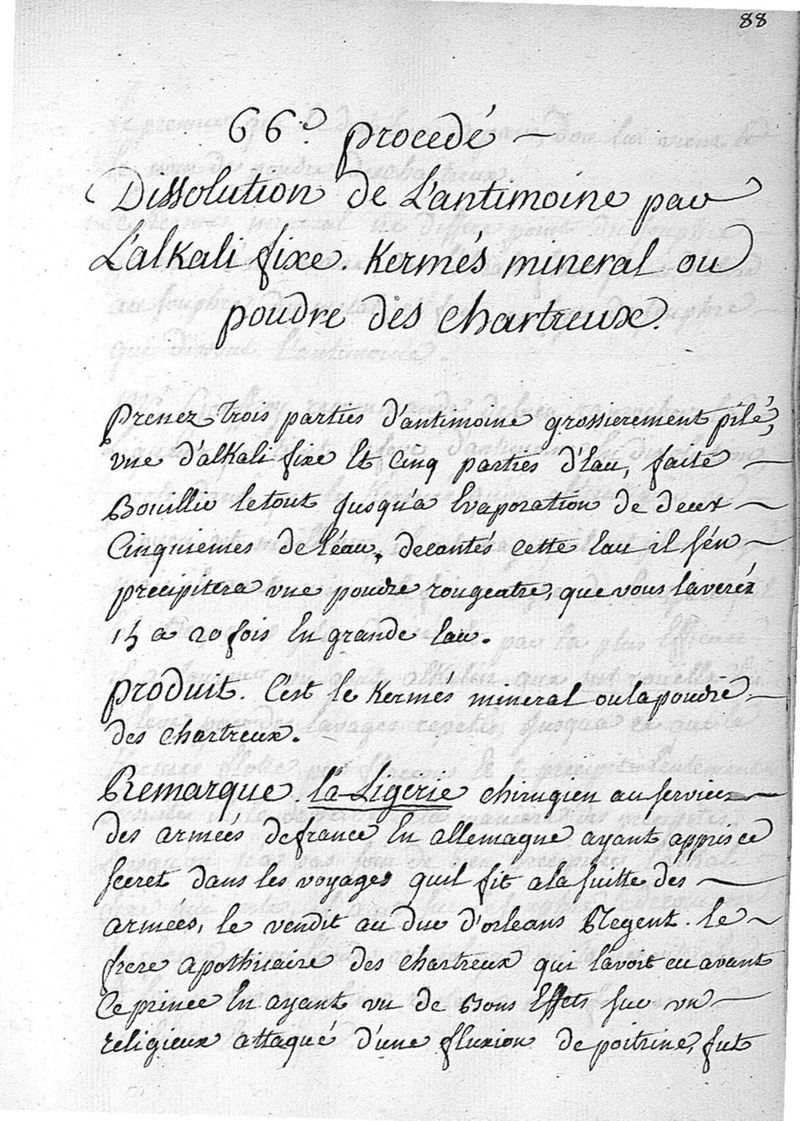 88
66.e procedé —
Dissolution de L'antimoine par
L'alkali fixe. Kermés mineral ou
poudre des chartreux.
Prenez trois parties d'antimoine grossierement pilé,
vne d'alkali fixe et cinq parties d'eau, faite —
Bouillir le tout jusqu'a Evaporation de deux —
Cinquiemes de l'eau, decantés cette eau il s'én —
precipitera vne poudre rougeatre, que vous laveréz
15 a 20 fois en grande eau.
produit. C'est le Kermes mineral ou la poudre —
des chartreux.
Remarque. la Ligerie chirugien au service —
des armées de france en allemagne ayant appris ce
secret dans les voyages quil fit a la suitte des —
armées, le vendit au duc d'orleans Regent. le —
frere apothicaire des chartreux qui l'avoit eu avant
Ce prince en ayant vu de Bons Effets sur vn —
religieux attaqué d'une fluxion de poitrine, fut